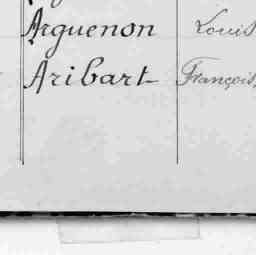 Arguenon Louis
Aribart François,